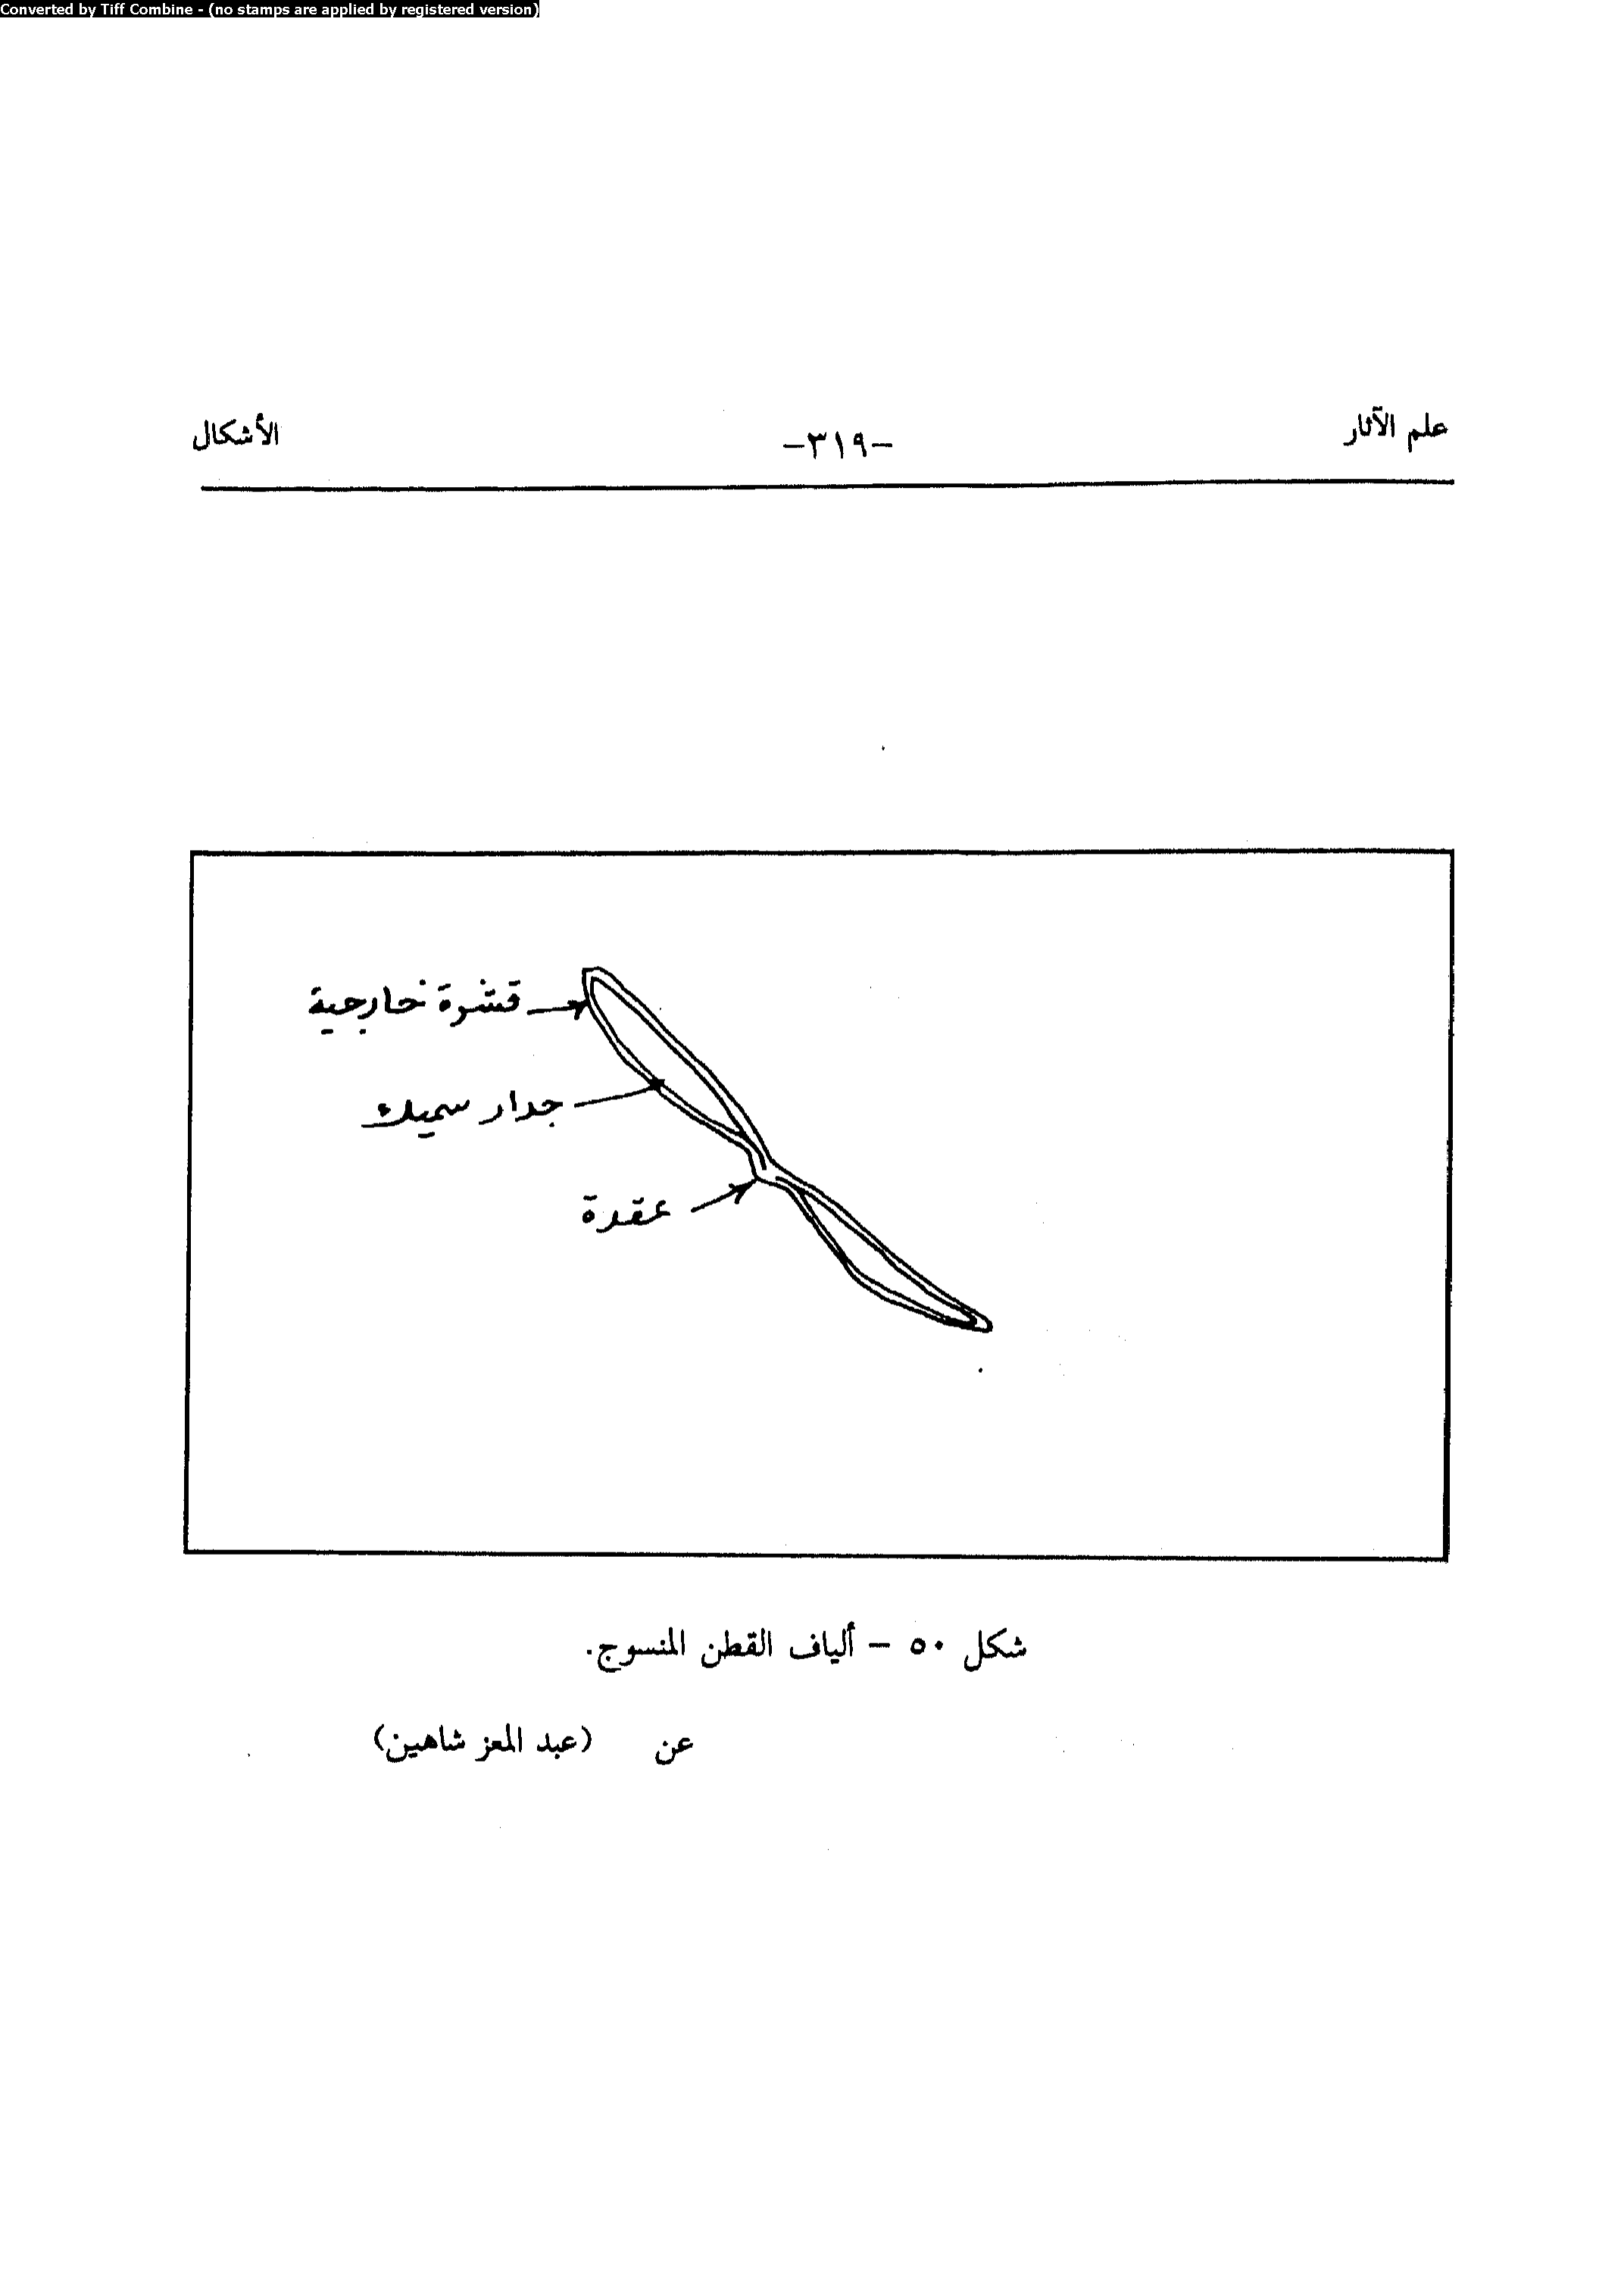 Converted by Tiff Combine - (no stamps are applied by registered version)
علم الآثار -٣١٩- الأشكال
قشرة خارجية
جدار سميك
عقدة
شكل ٥٠ - ألياف القطن المنسوج.
عن (عبد المعز شاهين)